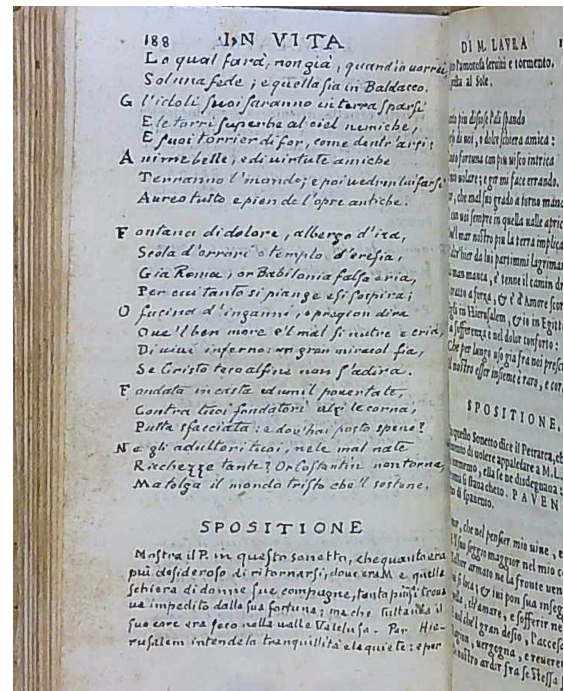 188 IN VITA
Lo qual farà, non già, quand'io uorrei
Sol una fede; e quella fia in Baldacco.
G l'idoli suoi saranno in terra sparsi
E le torri superbe al ciel nemiche,
E suoi torrier di for, come dentr'arsi;
A nime belle, e di uirtute amiche
Terranno l'mondo; e poi uedrem lui farsi
Aureo tutto e pien de l'opre antiche.
F ontana di dolore, albergo d'ira,
Scola d'errori o templo d'eresia,
Gia Roma, or Babilonia falsa e ria,
Per cui tanto si piange e si sospira;
O fucina d'inganni, o pregion dira
Oue 'l ben more e 'l mal si nutre e cria,
Di uiui inferno: un gran miracol fia,
Se Cristo teco alfine non s'adira.
F ondata in casta ed umil pouertate,
Contra tuoi fondatori alzi le corna,
Putta sfacciata: e dov'hai posto spene?
N e gli adulteri tuoi, ne le mal nate
Ricchezze tante? Or Costantin non torna,
Ma tolga il mondo tristo che 'l sostene.
SPOSITIONE
Mostra il P. in questo sonetto, che quanto era
più desideroso di ritornarsi, doue era M e quella
schiera di donne sue compagne, tanto più si troua
ua impedito dalla sua fortuna; ma che tutta uia il
suo core era seco nella ualle Valclusa. Per Hie-
rusalem intende la tranquillità e la quiete: e per
DI M. LAVRA
seruitù e tormento,
al Sole.
più disfose l'ali spando
di uoi, o dolce schiera amica:
fortuna con più uisco intrica
uolare; e gir mi face errando.
che mal suo grado a torno mand
uoi sempre in quella ualle apric
mar nostro più la terra implica
hier da lui partimmi lagrimand
man manca, e tenne il camin dr
a forza, & e' d'Amore scor
in Hierusalem, & io in Egitt
sofferenze nel dolor conforto:
Che per lungo uso già fra noi presc
il nostro esser insieme è raro, e cor
SPOSITIONE.
questo Sonetto dice il Petrarca, ch
di uolere appalesare a M. L.
tormento, ella se ne disdegnaua:
si staua cheto. PAVEN
di spauento.
che nel pensier mio uiue, e
seggio maggior nel mio c
armato ne la fronte uen
si loca; & iui pon sua inseg
ch'amare, e sofferir ne
che 'l gran desio, l'acces
uergogna, e reueren
nostro ardir fra se stessa s